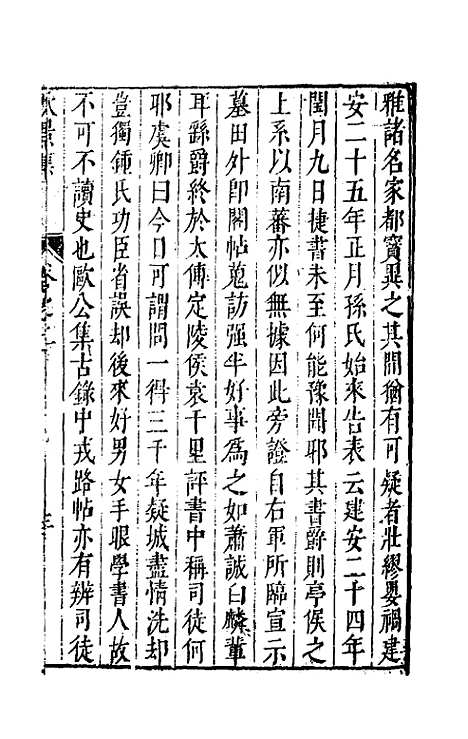 雅諸名家都寶異之其間猶有可疑者壯繆嬰禍建
安二十五年正月孫氏始來告表云建安二十四年
閏月九日捷書未至何能豫聞耶其書爵則亭侯之
上系以南蕃亦似無據因此旁證自右軍所臨宣示
墓田外卽閣帖蒐訪强半好事爲之如蕭誠白麟輩
耳繇爵終於太傅定陵侯袁千里評書中稱司徒何
耶虞卿曰今日可謂問一得三千年疑城盡情洗却
豈獨鍾氏功臣省誤却後來好男女手眼學書人故
不可不讀史也歐公集古錄中戎路帖亦有辨司徒